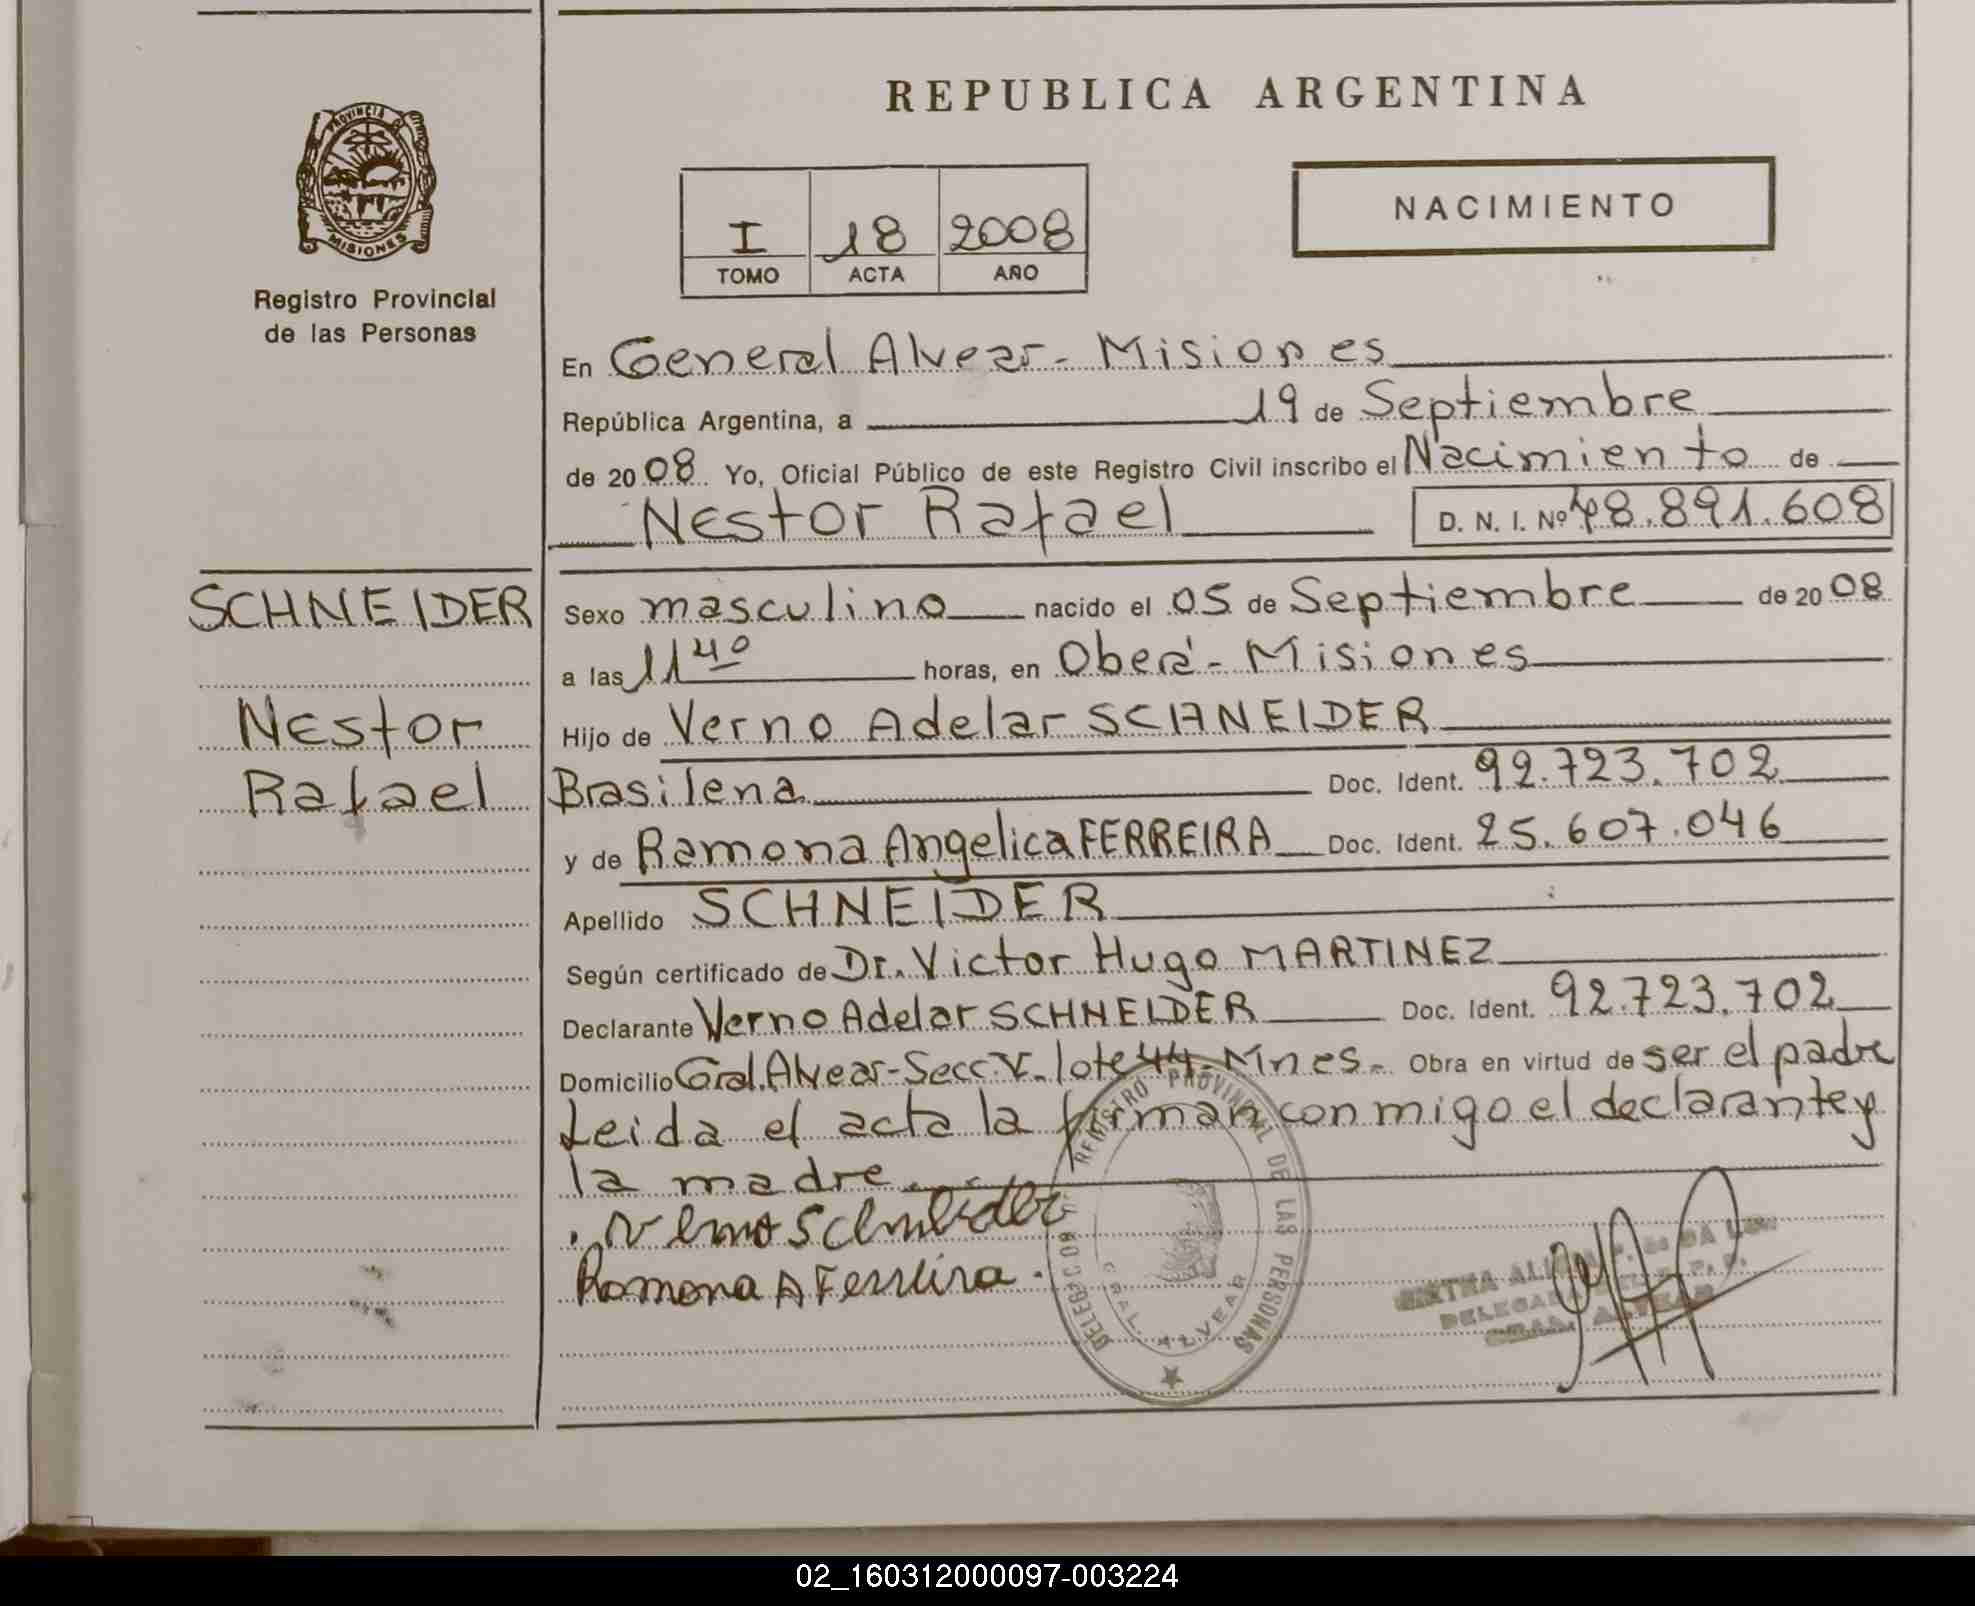 REPUBLICA ARGENTINA
PROVINCIA D
MISIONES
Registro Provincial
de las Personas
I 18 2008
TOMO ACTA AÑO
NACIMIENTO
En General Alvear - Misiones
República Argentina, a 19 de Septiembre
de 2008 Yo, Oficial Público de este Registro Civil inscribo el Nacimiento de
Nestor Rafael D. N. I. Nº 48.891.608
SCHNEIDER
Nestor
Rafael
Sexo masculino nacido el 05 de Septiembre de 2008
a las 11 40 horas, en Oberá - Misiones
Hijo de Verno Adelar SCHNEIDER
Brasilena Doc. Ident. 92.723.702
y de Ramona Angelica FERREIRA Doc. Ident. 25.607.046
Apellido SCHNEIDER
Según certificado de Dr. Victor Hugo MARTINEZ
Declarante Verno Adelar SCHNEIDER Doc. Ident. 92.723.702
Domicilio Gral. Alvear - Secc. V - lote 44 - Mnes. Obra en virtud de ser el padre
Leida el acta la firman conmigo el declarante y
la madre.
Ramona A Ferreira.
REGISTRO PROVINCIAL DE LAS PERSONAS
GRAL. ALVEAR
DELEGADA
GRAL. ALVEAR
02_160312000097-003224